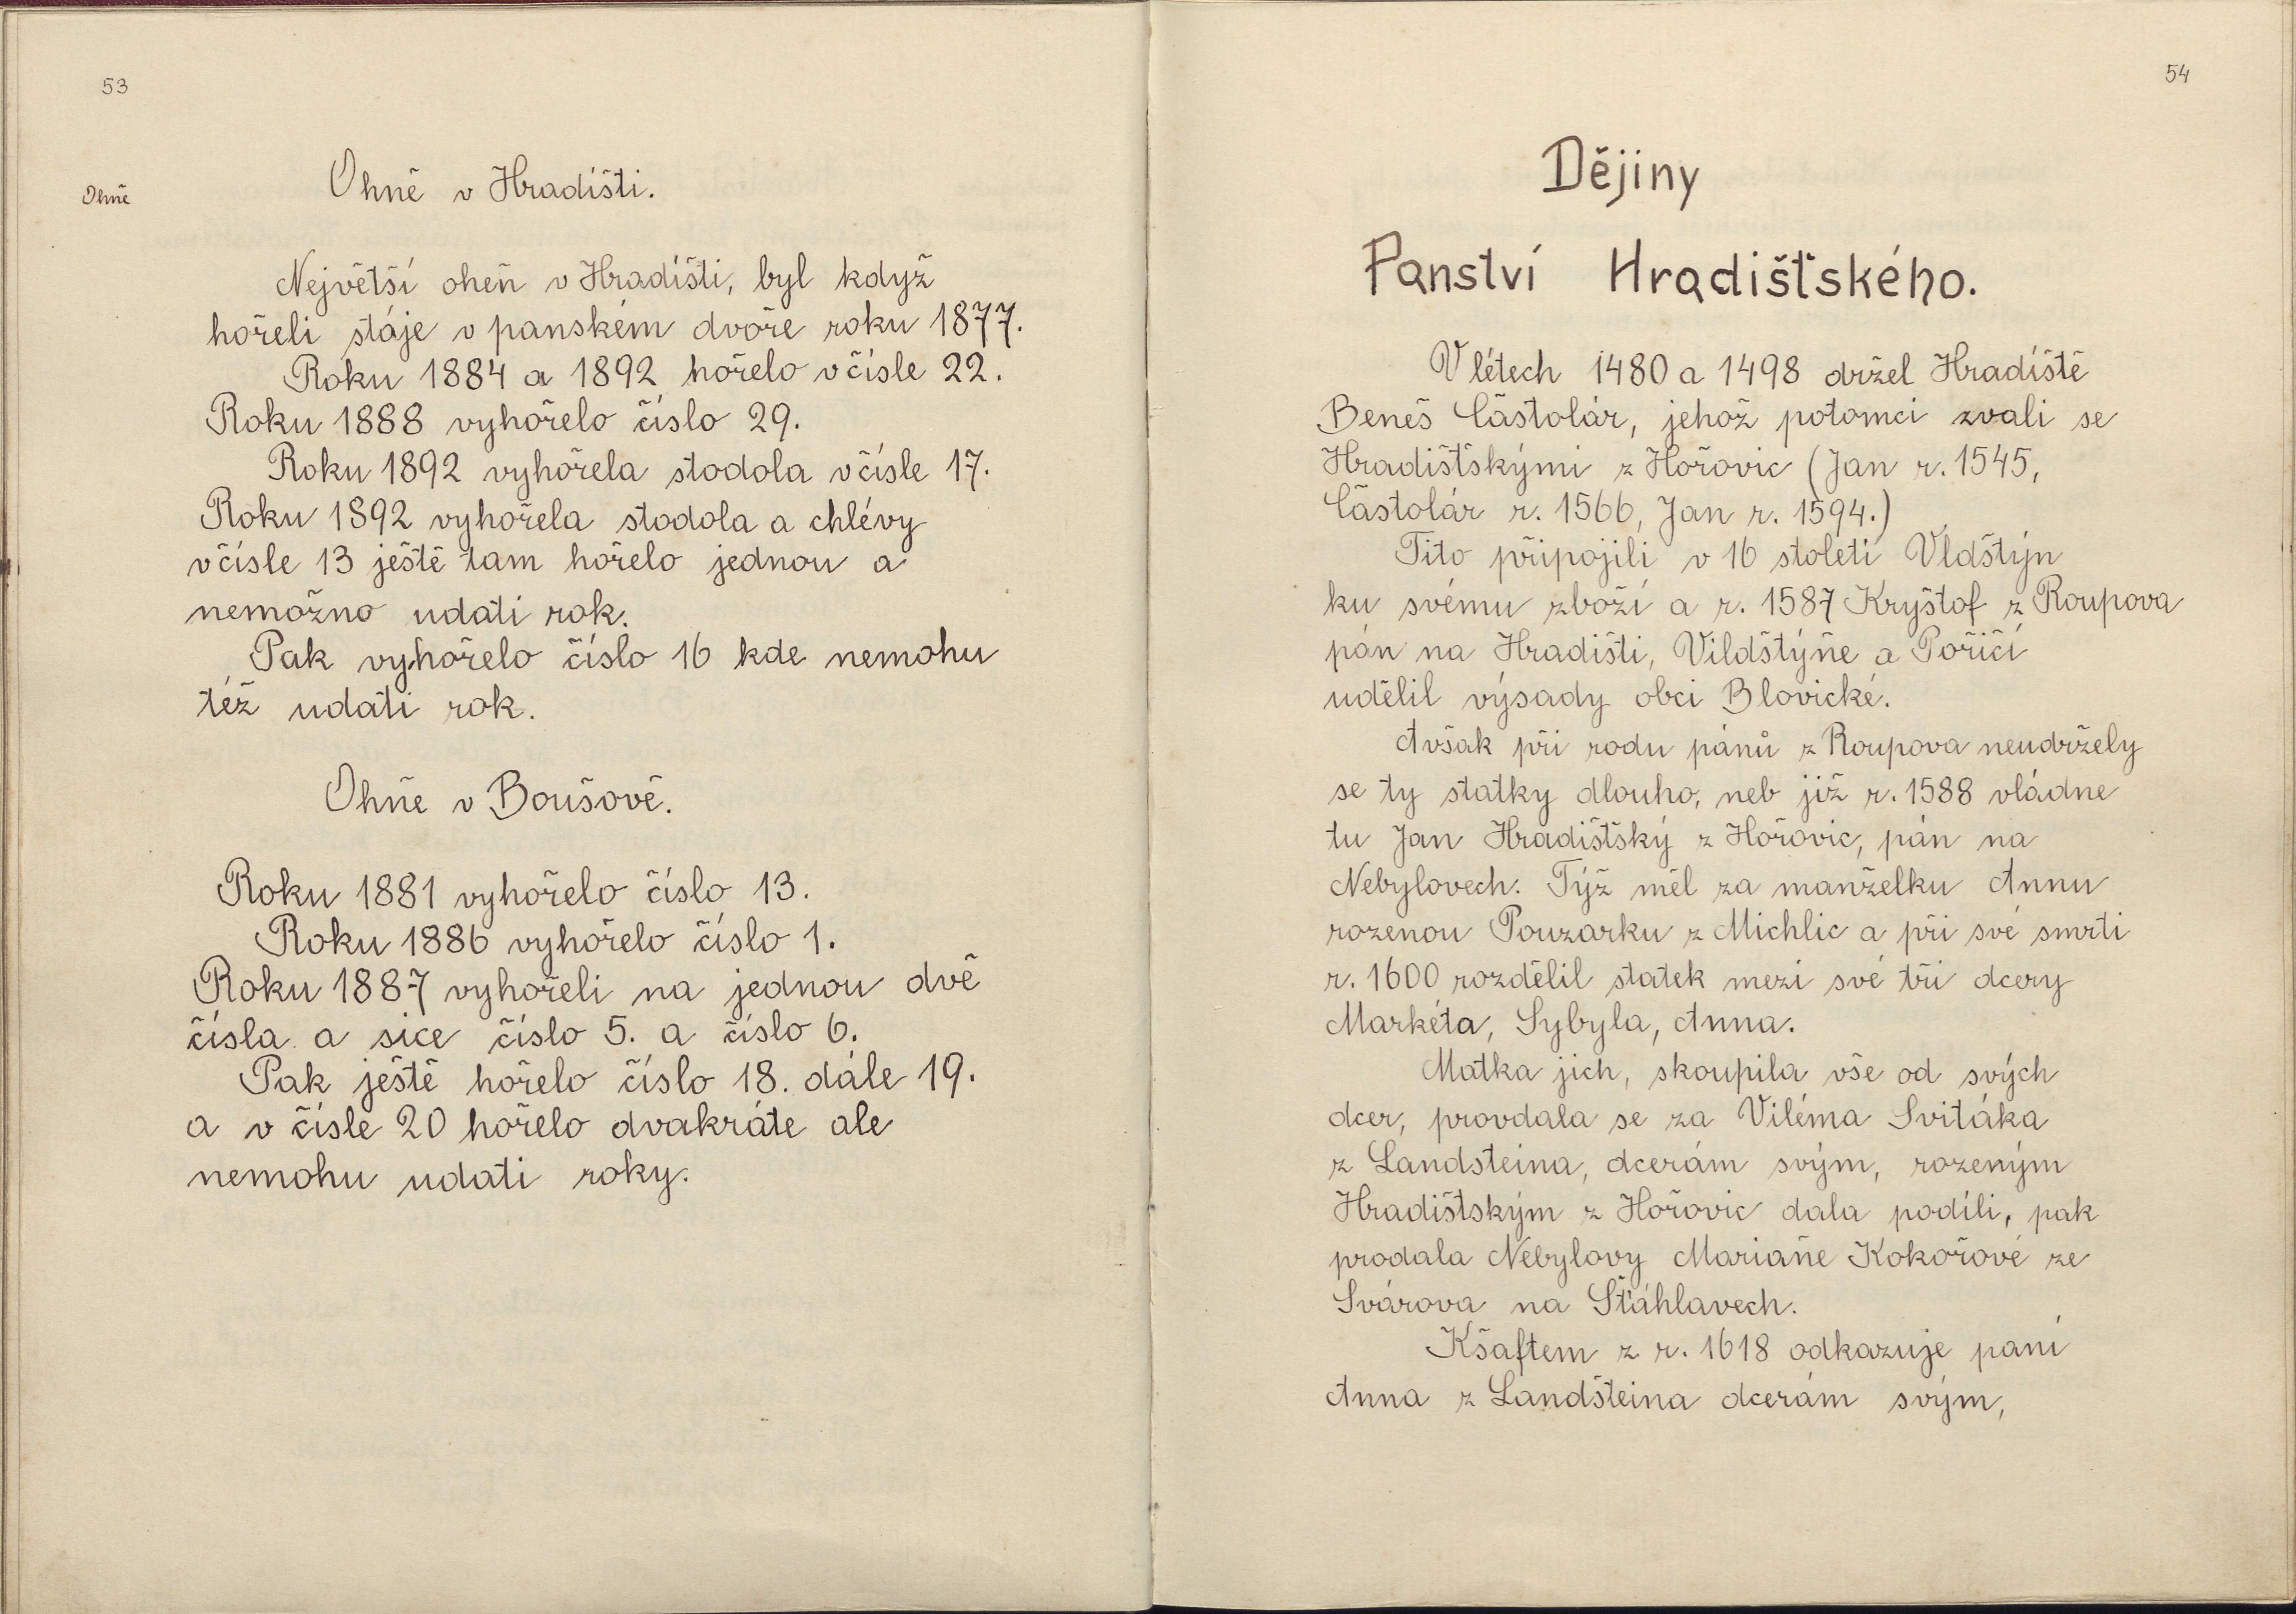 53
Ohně
Ohně v Hradišti.
Největší oheň v Hradíšti, byl když
hořeli stáje v panském dvoře roku 1877.
Roku 1884 a 1892 hořelo v čísle 22.
Roku 1888 vyhořelo číslo 29.
Roku 1892 vyhořela stodola v čísle 17.
Roku 1892 vyhořela stodola a chlévy
v čísle 13 ještě tam hořelo jednou a
nemožno udati rok.
Pak vyhořelo číslo 16 kde nemohu
též udati rok.
Ohně v Boušově.
Roku 1881 vyhořelo číslo 13.
Roku 1886 vyhořelo číslo 1.
Roku 1887 vyhořeli na jednou dvě
čísla a sice číslo 5. a číslo 6.
Pak ještě hořelo číslo 18. dále 19.
a v čísle 20 hořelo dvakráte ale
nemohu udati roky.
54
Dějiny
Panství Hradišťského.
V létech 1480 a 1498 držel Hradíště
Beneš Částolár, jehož potomci zvali se
Hradišťskými z Hořovic (Jan r. 1545,
Částolár r. 1566, Jan r. 1594.)
Tito připojili v 16 století Vldštýn
ku svému zboží a r. 1587 Kryštof z Roupova
pán na Hradišti, Vildštýně a Poříčí
udělil výsady obci Blovické.
Avšak při rodu pánů z Roupova neudržely
se ty statky dlouho, neb již r. 1588 vládne
tu Jan Hradišťský z Hořovic, pán na
Nebylovech. Týž měl za manželku Annu
rozenou Pouzarku z Michlic a při své smrti
r. 1600 rozdělil statek mezi své tři dcery
Markéta, Sybyla, Anna.
Matka jich, skoupila vše od svých
dcer, provdala se za Viléma Svitáka
z Landsteina, dcerám svým, rozeným
Hradištským z Hořovic dala podíli, pak
prodala Nebylovy Marianě Kokořové ze
Svárova na Šťáhlavech.
Kšaftem z r. 1618 odkazuje paní
Anna z Landšteina dcerám svým,